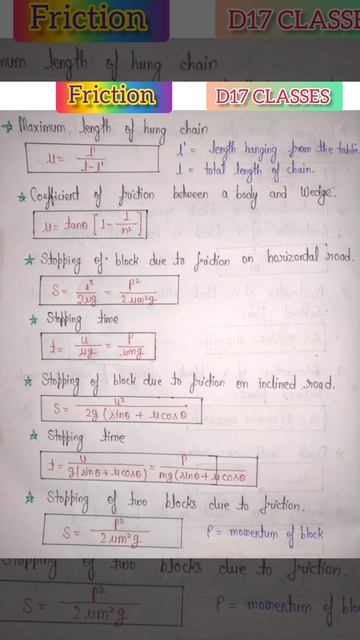 Friction
D17 CLASSES
mum length of hung chain
Friction
D17 CLASSES
→ Maximum length of hung chain
μ = l'/l-l'
l' = length hanging from the table.
l = total length of chain.
☆ Coefficient of friction between a body and Wedge.
μ = tanθ [1 - 1/n²]
☆ Stopping of block due to friction on horizontal road.
S = u²/2μg = P²/2μm²g
☆ Stopping time
t = u/μg = P/μmg
☆ Stopping of block due to friction on inclined road.
S = u²/2g(sinθ + μcosθ
☆ Stopping time
t = u/g(sinθ+μcosθ) = P/mg(sinθ+μcosθ
☆ Stopping of two blocks due to friction.
S = P²/2μm²g
P = momentum of block
Stopping of two blocks due to friction.
S = P²/2μm²g
P = momentum of blo